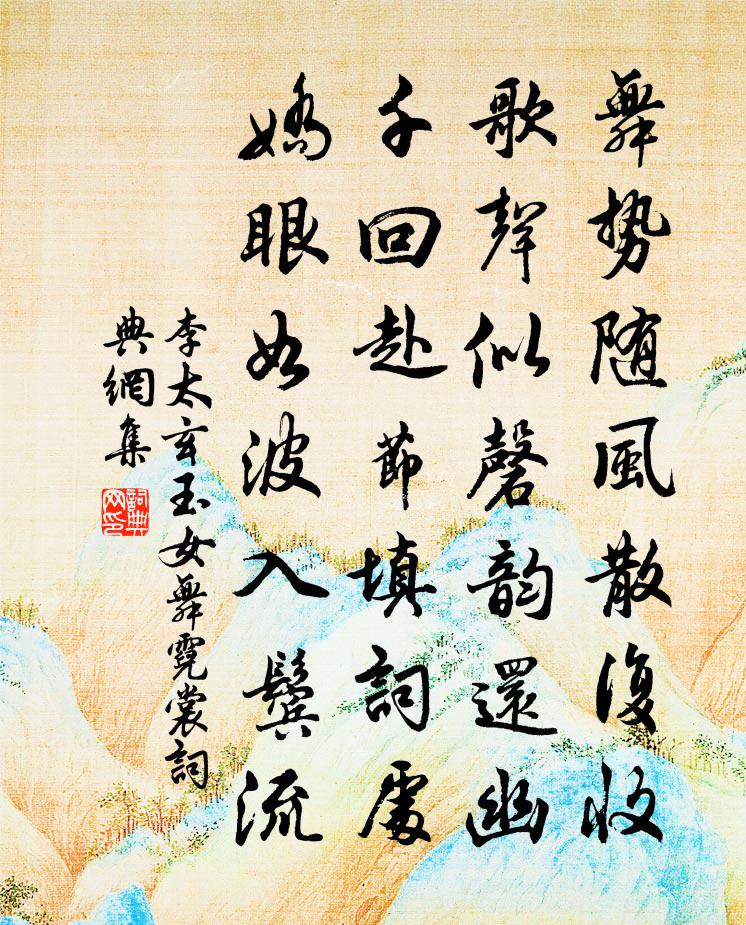 舞勢随風散復收
歌聲似磬韵還幽
千回赴節填詞處
嬌眼如波入鬢流
李太玄玉女舞霓裳詞
典網集
詞典网印